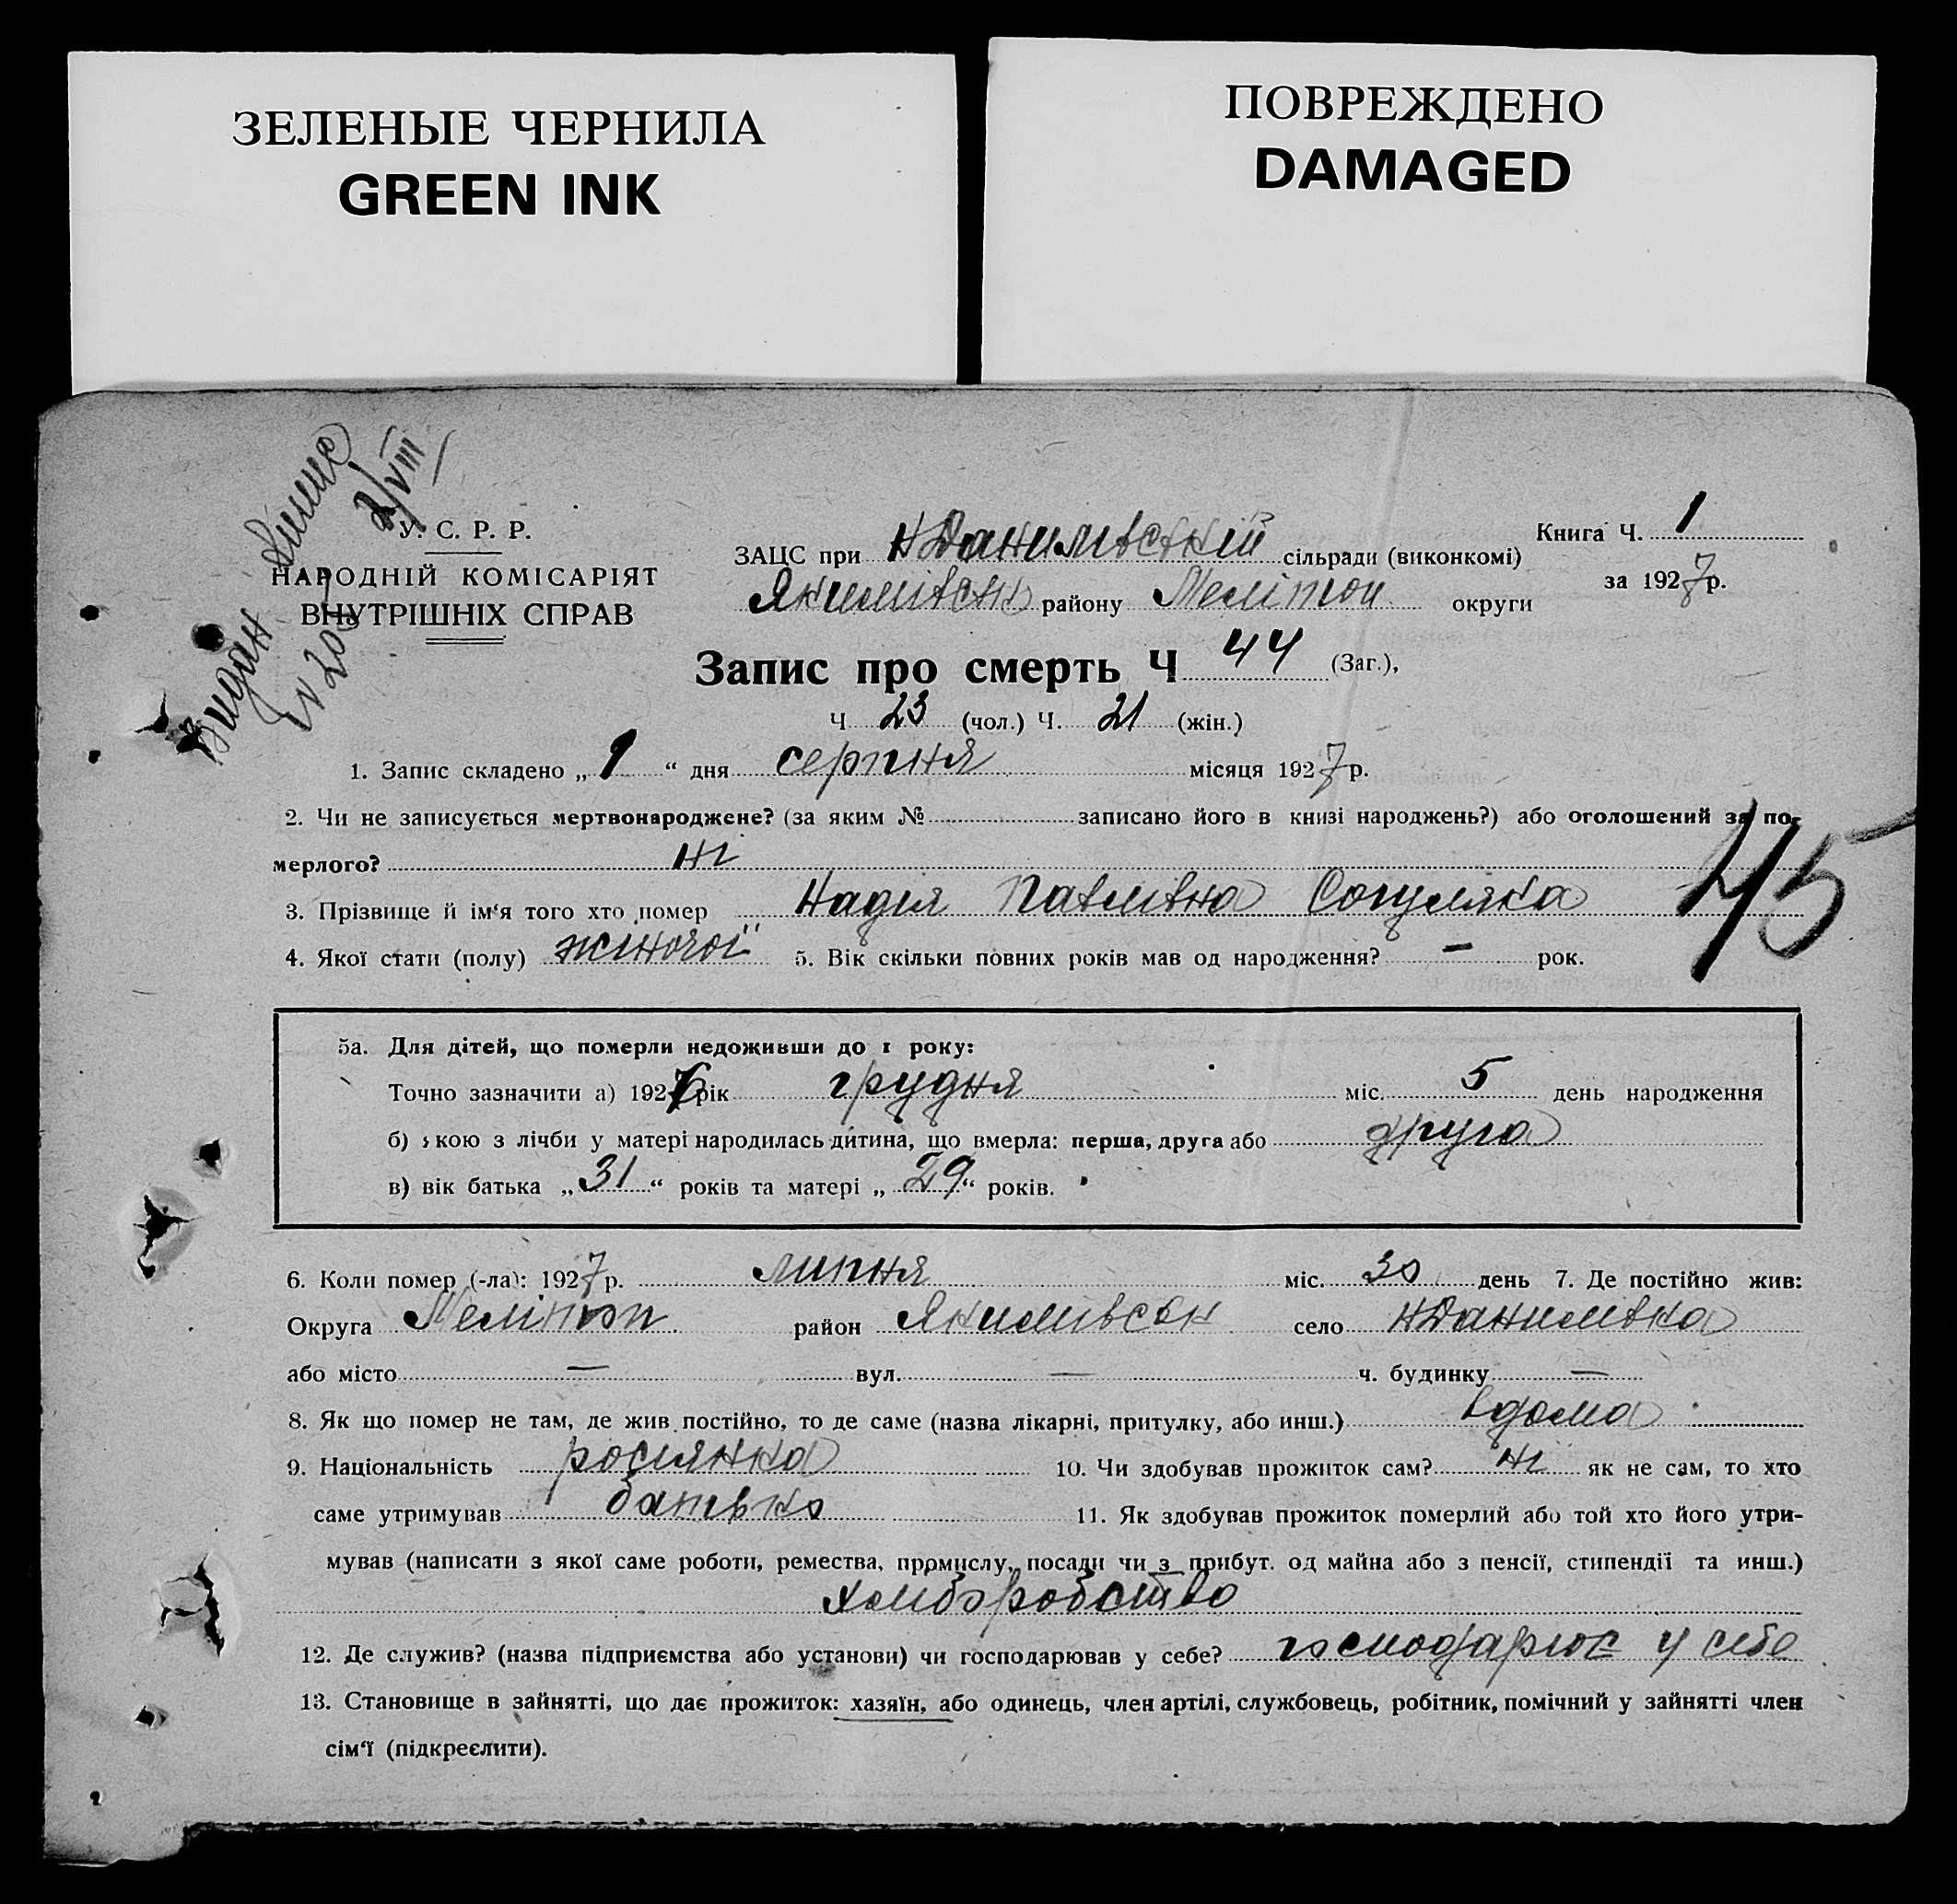 ЗЕЛЕНЫЕ ЧЕРНИЛА
GREEN INK
ПОВРЕЖДЕНО
DAMAGED
Видан
2/VIII
У. С. Р. Р.
НАРОДНІЙ КОМІСАРІЯТ
ВНУТРІШНІХ СПРАВ
Книга Ч. 1
за 1927 р.
ЗАЦС при НДанилівській сільради (виконкомі)
Якимівськ району Мелітоп округи
Запис про смерть Ч 44 (Заг.),
Ч 23 (чол.) Ч. 21 (жін.)
1. Запис складено „ 1 “ дня серпня місяця 1927 р.
2. Чи не записується мертвонароджене? (за яким № записано його в книзі народжень?) або оголошений за по-
мерлого? ні
45
3. Прізвище й ім‘я того хто помер Надія Павлівна
4. Якої стати (полу) жіночої 5. Вік скільки повних років мав од народження? — рок.
5а. Для дітей, що померли недоживши до 1 року:
Точно зазначити а) 1926 рік грудня міс. 5 день народження
б) якою з лічби у матері народилась дитина, що вмерла: перша, друга або друга
в) вік батька „ 31 “ років та матері „ 29 “ років.
6. Коли помер (-ла): 1927 р. липня міс. 30 день 7. Де постійно жив:
Округа Мелітоп район Якимівськ село НДанилівка
або місто — вул. — ч. будинку —
8. Як що помер не там, де жив постійно, то де саме (назва лікарні, притулку, або инш.) вдома
9. Національність росіянка 10. Чи здобував прожиток сам? ні як не сам, то хто
саме утримував батько 11. Як здобував прожиток померлий або той хто його утри-
мував (написати з якої саме роботи, ремества, промислу, посади чи з прибут. од майна або з пенсії, стипендії та инш.)
хліборобство
12. Де служив? (назва підприємства або установи) чи господарював у себе? господарює у себе
13. Становище в зайнятті, що дає прожиток: хазяїн, або одинець, член артілі, службовець, робітник, помічний у зайнятті член
сім‘ї (підкреєлити).